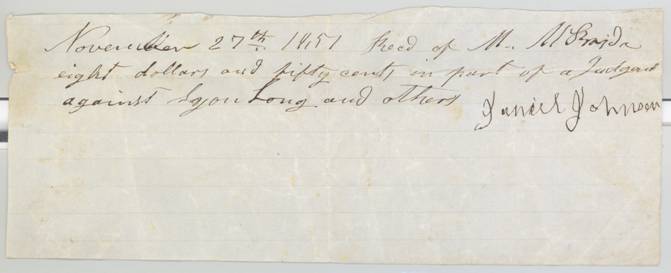 November 27th. 1851 Recd of M. McBride
eight dollars and fifty cents in part of a Judgmt
against Lyon Long and others
Daniel Johnson